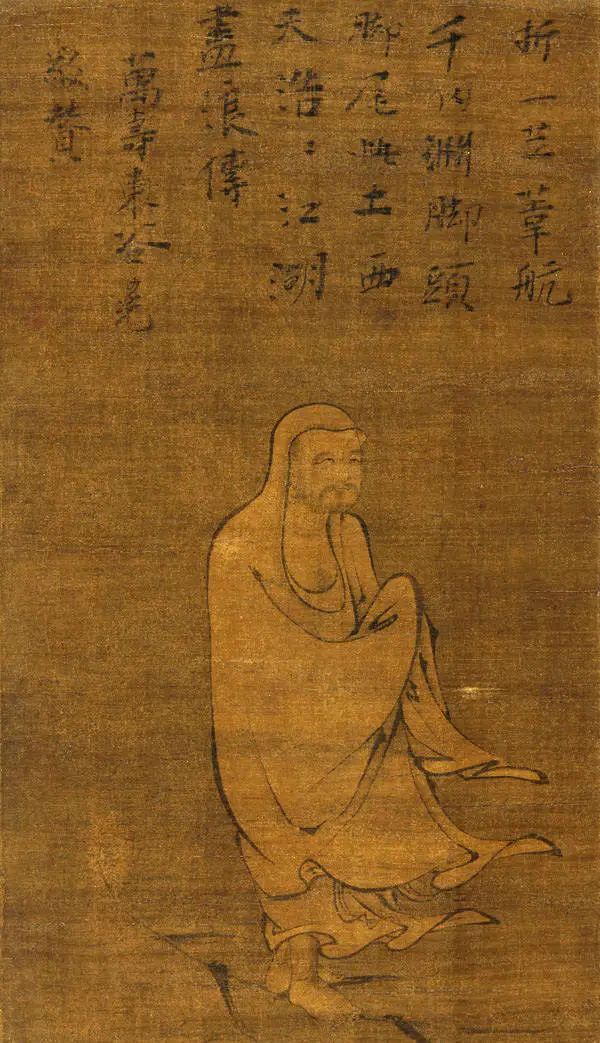 折一茎葦航
千仞淵脚頭
脚尾此土西
天浩〻江湖
盡浪傳
萬壽東谷光
敬贊